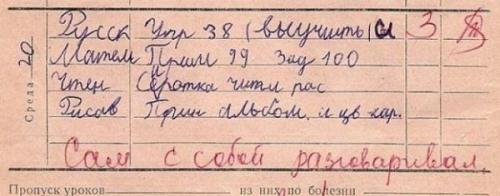 Русск Упр 38 (выучить) и 3
Матем Прим 99 Зад 100
Среда 20
Чтен Сиротка читл рас
Рисов Прин альбом. и цв кар.
Сам с собой разговаривал.
Пропуск уроков из них по болезни